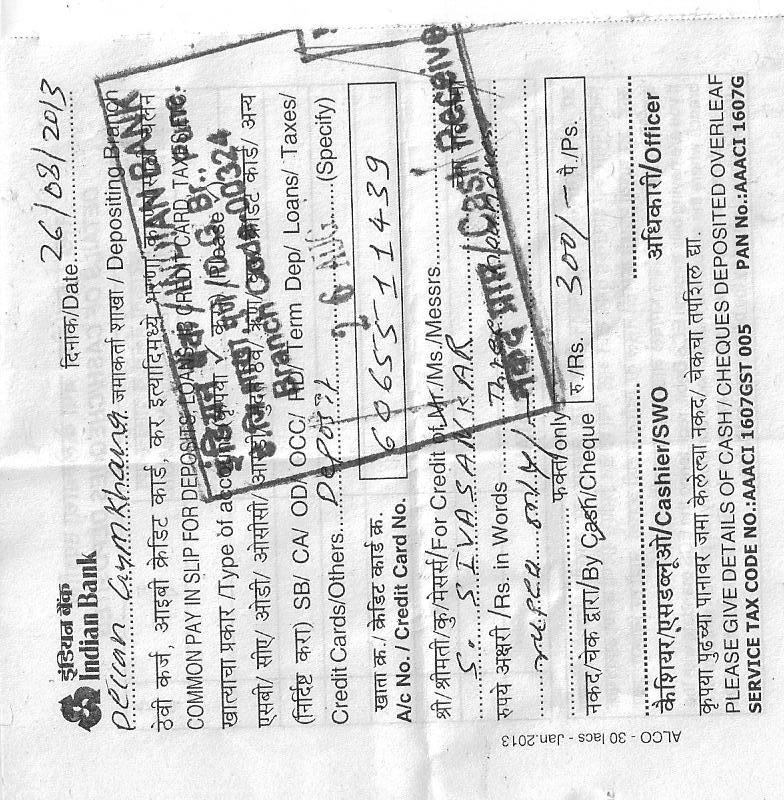 इंडियन बैंक
Indian Bank
दिनांक/Date 26/08/2013
Gymkhana जमाकर्ता शाखा / Depositing Branch
ठेवी कर्ज, आइबी क्रेडिट कार्ड, कर इत्यादिमध्ये
COMMON PAY IN SLIP FOR DEPOSITS, LOANS, IB CREDIT CARD, TAX
खात्याचा प्रकार /Type of account (कृपया ✓ करा) (Please ✓)
एसबी/ सीए/ ओडी/ ओसीसी/ आरडी/ मुदत ठेव/ क्रेडिट कार्ड/ अन्य
(निर्दिष्ट करा) SB/ CA/ OD/ OCC/ RD/ Term Dep/ Loans/ Taxes/
Credit Cards/Others Deposit (Specify)
खाता क्र./ क्रेडिट कार्ड क्र.
A/c No. / Credit Card No. 6065511439
श्री/श्रीमती/कु/मेसर्स/For Credit of Mr./Ms./Messrs
S. SIVASANKAR
रुपये अक्षरी /Rs. in Words Three
only/- फक्त/only
नकद/चेक द्वारा/By Cash/Cheque रु./Rs. 300/- पै./Ps.
कैशियर/एसडब्लूओ/Cashier/SWO अधिकारी/Officer
कृपया पुढच्या पानावर जमा केलेल्या नकद/ चेकचा तपशिल द्या.
PLEASE GIVE DETAILS OF CASH / CHEQUES DEPOSITED OVERLEAF
SERVICE TAX CODE NO.:AAACI 1607GST 005 PAN No.:AAACI 1607G
ALCO - 30 lacs - Jan.2013
इंडियन बैंक/INDIAN BANK
/D.G. Br.:
Branch Code:00324
26 AUG
नकद प्राप्त/Cash Receive